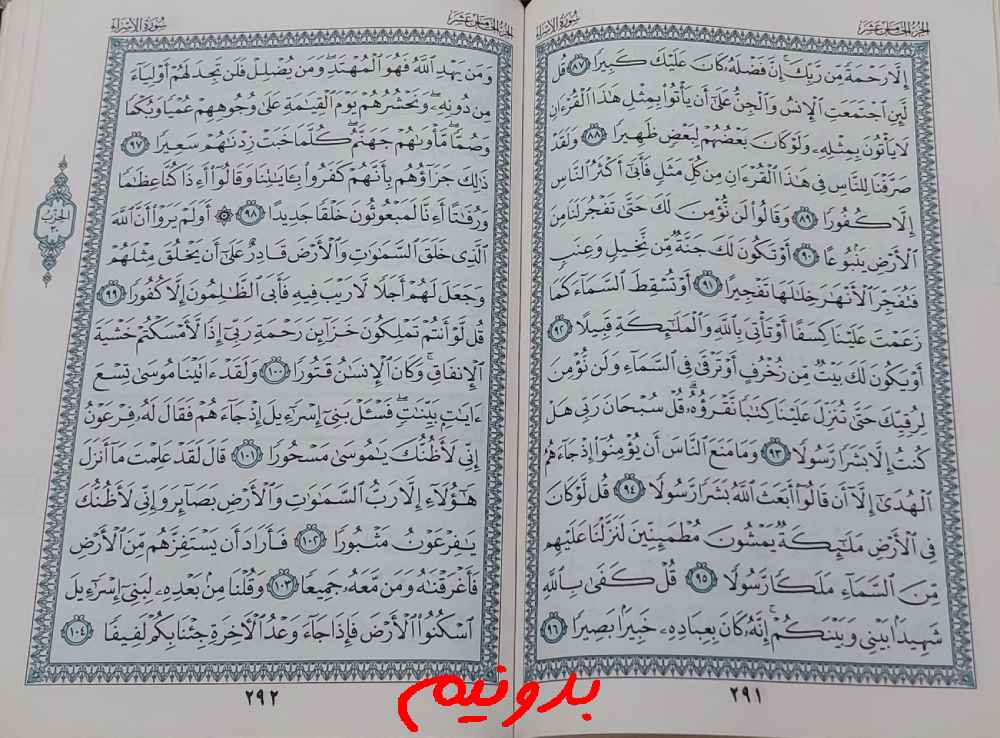 الجزء الخامس عشر
سورة الإسراء
إِلَّا رَحْمَةً مِّن رَّبِّكَ ۚ إِنَّ فَضْلَهُۥ كَانَ عَلَيْكَ كَبِيرًا ٨٧ قُل
لَّئِنِ ٱجْتَمَعَتِ ٱلْإِنسُ وَٱلْجِنُّ عَلَىٰٓ أَن يَأْتُوا۟ بِمِثْلِ هَٰذَا ٱلْقُرْءَانِ
لَا يَأْتُونَ بِمِثْلِهِۦ وَلَوْ كَانَ بَعْضُهُمْ لِبَعْضٍ ظَهِيرًا ٨٨ وَلَقَدْ
صَرَّفْنَا لِلنَّاسِ فِى هَٰذَا ٱلْقُرْءَانِ مِن كُلِّ مَثَلٍ فَأَبَىٰٓ أَكْثَرُ ٱلنَّاسِ
إِلَّا كُفُورًا ٨٩ وَقَالُوا۟ لَن نُّؤْمِنَ لَكَ حَتَّىٰ تَفْجُرَ لَنَا مِنَ
ٱلْأَرْضِ يَنۢبُوعًا ٩٠ أَوْ تَكُونَ لَكَ جَنَّةٌ مِّن نَّخِيلٍ وَعِنَبٍ
فَتُفَجِّرَ ٱلْأَنْهَٰرَ خِلَٰلَهَا تَفْجِيرًا ٩١ أَوْ تُسْقِطَ ٱلسَّمَآءَ كَمَا
زَعَمْتَ عَلَيْنَا كِسَفًا أَوْ تَأْتِىَ بِٱللَّهِ وَٱلْمَلَٰٓئِكَةِ قَبِيلًا ٩٢
أَوْ يَكُونَ لَكَ بَيْتٌ مِّن زُخْرُفٍ أَوْ تَرْقَىٰ فِى ٱلسَّمَآءِ وَلَن نُّؤْمِنَ
لِرُقِيِّكَ حَتَّىٰ تُنَزِّلَ عَلَيْنَا كِتَٰبًا نَّقْرَؤُهُۥ ۗ قُلْ سُبْحَانَ رَبِّى هَلْ
كُنتُ إِلَّا بَشَرًا رَّسُولًا ٩٣ وَمَا مَنَعَ ٱلنَّاسَ أَن يُؤْمِنُوٓا۟ إِذْ جَآءَهُمُ
ٱلْهُدَىٰٓ إِلَّآ أَن قَالُوٓا۟ أَبَعَثَ ٱللَّهُ بَشَرًا رَّسُولًا ٩٤ قُل لَّوْ كَانَ
فِى ٱلْأَرْضِ مَلَٰٓئِكَةٌ يَمْشُونَ مُطْمَئِنِّينَ لَنَزَّلْنَا عَلَيْهِم
مِّنَ ٱلسَّمَآءِ مَلَكًا رَّسُولًا ٩٥ قُلْ كَفَىٰ بِٱللَّهِ
شَهِيدًۢا بَيْنِى وَبَيْنَكُمْ ۚ إِنَّهُۥ كَانَ بِعِبَادِهِۦ خَبِيرًۢا بَصِيرًا ٩٦
٢٩١
الجزء الخامس عشر
سورة الإسراء
وَمَن يَهْدِ ٱللَّهُ فَهُوَ ٱلْمُهْتَدِ ۖ وَمَن يُضْلِلْ فَلَن تَجِدَ لَهُمْ أَوْلِيَآءَ
مِن دُونِهِۦ ۖ وَنَحْشُرُهُمْ يَوْمَ ٱلْقِيَٰمَةِ عَلَىٰ وُجُوهِهِمْ عُمْيًا وَبُكْمًا
وَصُمًّا ۖ مَّأْوَىٰهُمْ جَهَنَّمُ ۖ كُلَّمَا خَبَتْ زِدْنَٰهُمْ سَعِيرًا ٩٧
ذَٰلِكَ جَزَآؤُهُم بِأَنَّهُمْ كَفَرُوا۟ بِـَٔايَٰتِنَا وَقَالُوٓا۟ أَءِذَا كُنَّا عِظَٰمًا
وَرُفَٰتًا أَءِنَّا لَمَبْعُوثُونَ خَلْقًا جَدِيدًا ٩٨ ۞ أَوَلَمْ يَرَوْا۟ أَنَّ ٱللَّهَ
ٱلَّذِى خَلَقَ ٱلسَّمَٰوَٰتِ وَٱلْأَرْضَ قَادِرٌ عَلَىٰٓ أَن يَخْلُقَ مِثْلَهُمْ
وَجَعَلَ لَهُمْ أَجَلًا لَّا رَيْبَ فِيهِ فَأَبَى ٱلظَّٰلِمُونَ إِلَّا كُفُورًا ٩٩
قُل لَّوْ أَنتُمْ تَمْلِكُونَ خَزَآئِنَ رَحْمَةِ رَبِّىٓ إِذًا لَّأَمْسَكْتُمْ خَشْيَةَ
ٱلْإِنفَاقِ ۚ وَكَانَ ٱلْإِنسَٰنُ قَتُورًا ١٠٠ وَلَقَدْ ءَاتَيْنَا مُوسَىٰ تِسْعَ
ءَايَٰتٍۭ بَيِّنَٰتٍ ۖ فَسْـَٔلْ بَنِىٓ إِسْرَٰٓءِيلَ إِذْ جَآءَهُمْ فَقَالَ لَهُۥ فِرْعَوْنُ
إِنِّى لَأَظُنُّكَ يَٰمُوسَىٰ مَسْحُورًا ١٠١ قَالَ لَقَدْ عَلِمْتَ مَآ أَنزَلَ
هَٰٓؤُلَآءِ إِلَّا رَبُّ ٱلسَّمَٰوَٰتِ وَٱلْأَرْضِ بَصَآئِرَ وَإِنِّى لَأَظُنُّكَ
يَٰفِرْعَوْنُ مَثْبُورًا ١٠٢ فَأَرَادَ أَن يَسْتَفِزَّهُم مِّنَ ٱلْأَرْضِ
فَأَغْرَقْنَٰهُ وَمَن مَّعَهُۥ جَمِيعًا ١٠٣ وَقُلْنَا مِنۢ بَعْدِهِۦ لِبَنِىٓ إِسْرَٰٓءِيلَ
ٱسْكُنُوا۟ ٱلْأَرْضَ فَإِذَا جَآءَ وَعْدُ ٱلْءَاخِرَةِ جِئْنَا بِكُمْ لَفِيفًا ١٠٤
الحزب
٣٠
٢٩٢
بدونیم